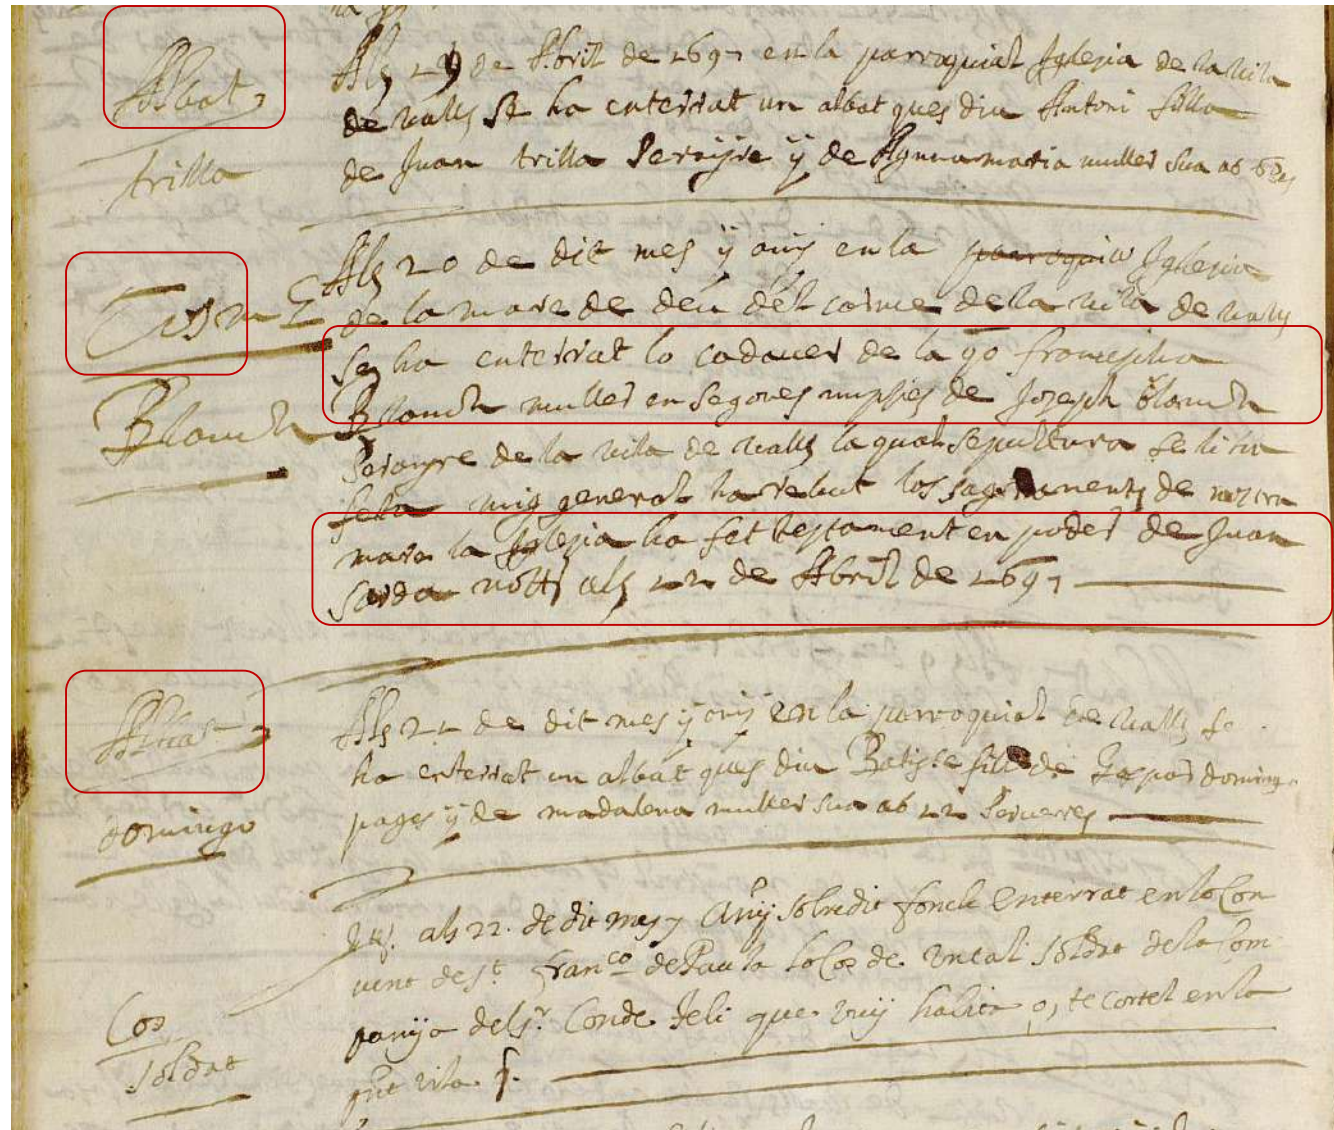 Albat
trilla
Als 19 de Abril de 1697 en la parroquial Iglesia de la vila
de valls se ha enterrat un albat ques diu Antoni fill
de Juan trilla Perayre y de Agnna maria muller sua ab
Cos m
Blanch
Als 20 de dit mes y any en la parroquia Iglesia
de la mare de deu del carme de la vila de valls
se ha enterrat lo cadaver de la qo francisca
Blanch muller en segones nupsies de Joseph blanch
Perayre de la vila de valls la qual sepultura se li ha
feta mig general ha rebut los sagraments de nostra
mare la Iglesia ha fet testament en poder de Juan
sarda nott als 12 de Abril de 1697
Albat
domingo
Als 21 de dit mes y any en la parroquial de valls se
ha enterrat un albat ques diu Batiste fill de Gaspar domingo
pages y de madalena muller sua ab 12 Preveres
Cos
soldat
als 22. de dit mes y Any sobredit fonch enterrat en lo Con
vent de st. franco de Paula lo Cos de un tal soldat de la Com
panya del sr. Conde que vuy habita o, te cortel en la
pnt vila.